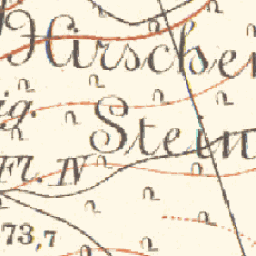 Hirschen
ig.
Stein
Fl. IV
73,7